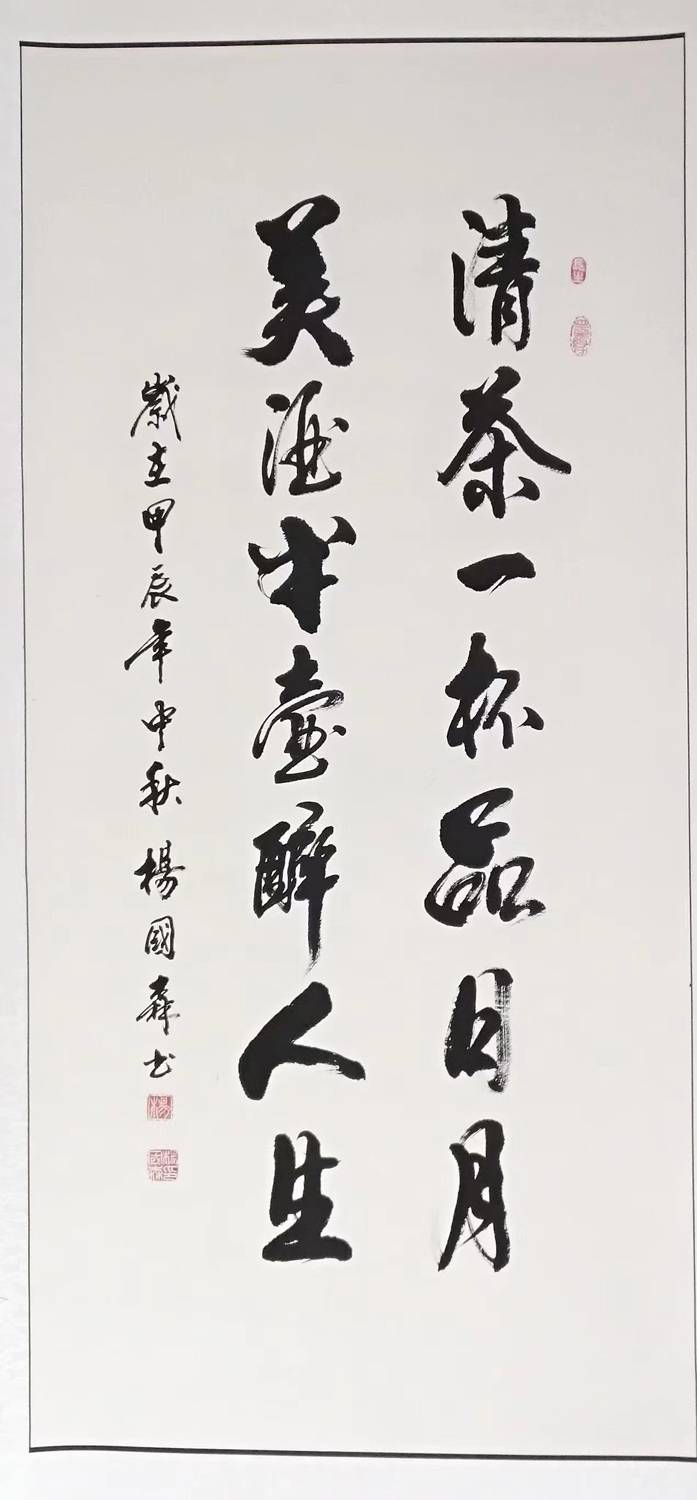 清茶一杯品日月
美酒半壺醉人生
歲在甲辰年中秋楊國森书